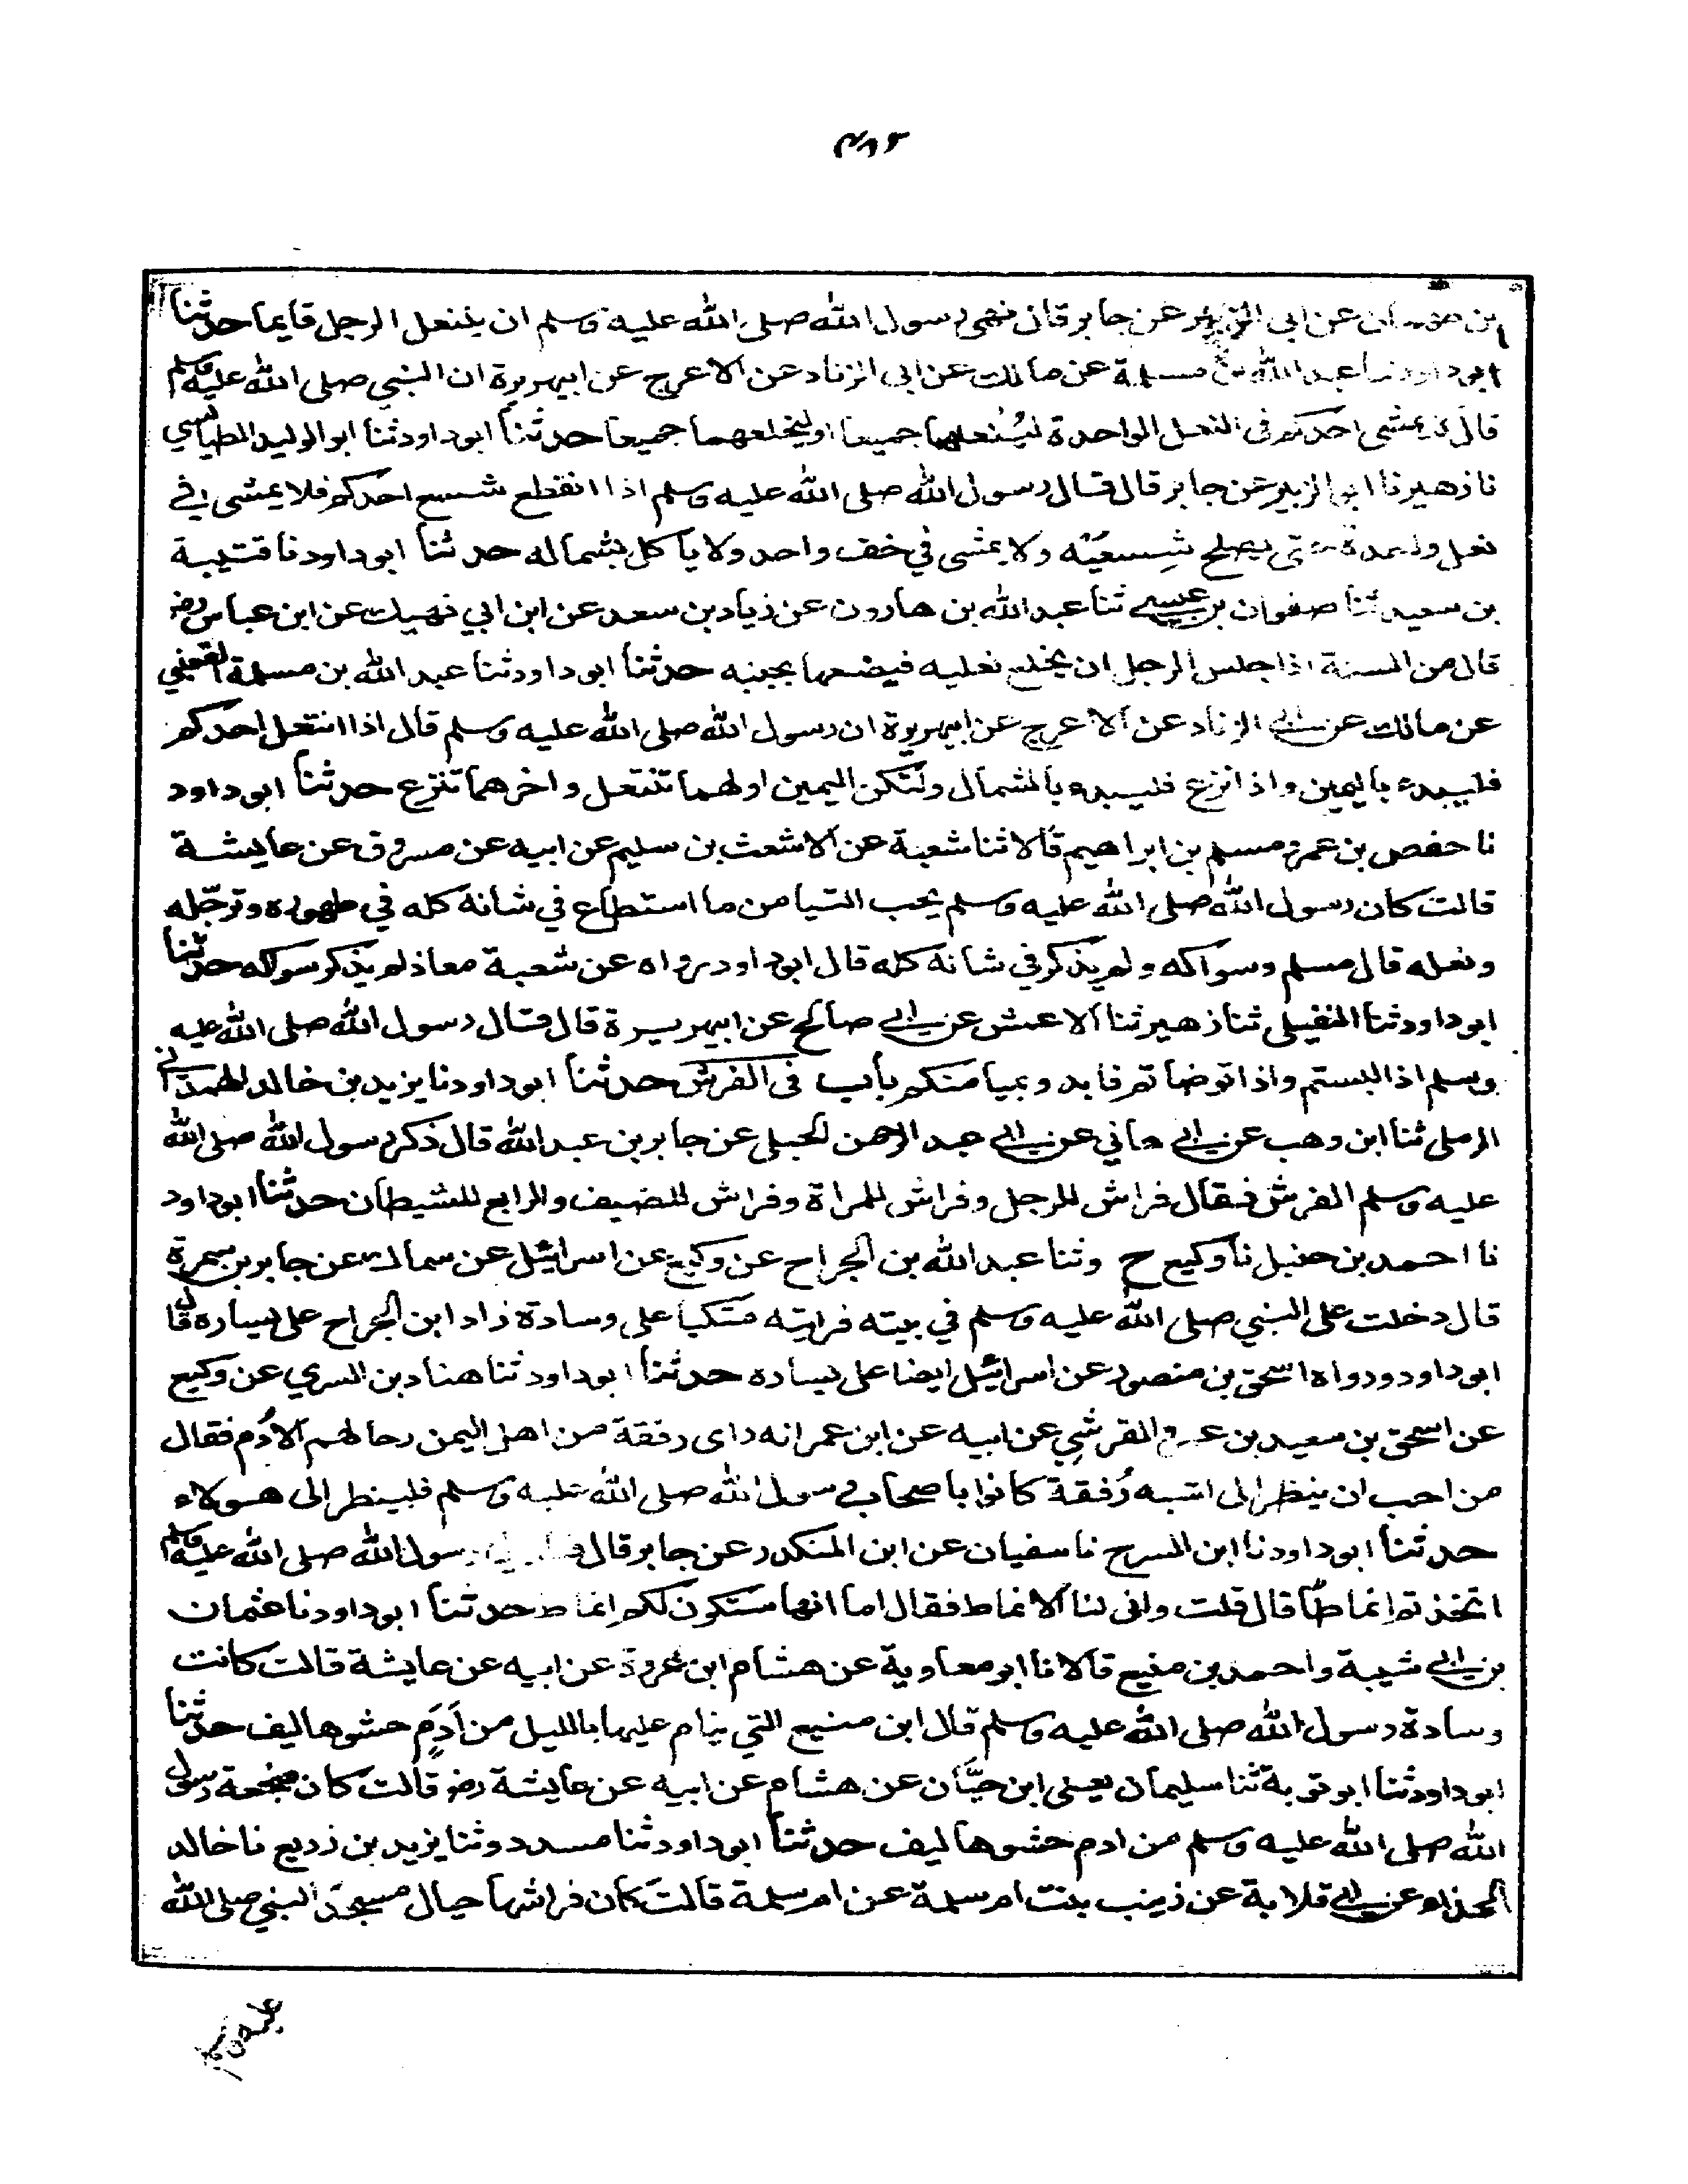 ٤٨٢
بن طهمان عن ابي الزبير عن جابر قال نهى رسول الله صلى الله عليه وسلم ان ينتعل الرجل قايما حدثنا
ابوداود نا عبد الله بن مسلمة عن مالك عن ابي الزناد عن الاعرج عن ابيهريرة ان النبي صلى الله عليه وسلم
قال لا يمشي احدكم في النعل الواحدة لينتعلهما جميعا او ليخلعهما جميعا حدثنا ابوداود ثنا ابو الوليد الطيالسي
نا زهير نا ابو الزبير عن جابر قال قال رسول الله صلى الله عليه وسلم اذا انقطع شسع احدكم فلا يمشى في
نعل واحدة حتى يصلح شسعيه ولا يمشى في خف واحد ولا ياكل بشماله حدثنا ابوداود نا قتيبة
بن سعيد ثنا صفوان بن عيسى ثنا عبد الله بن هارون عن زياد بن سعد عن ابن ابي نهيك عن ابن عباس رضـ
قال من السنة اذا جلس الرجل ان يخلع نعليه فيضعها بجنبه حدثنا ابوداود ثنا عبد الله بن مسلمة القعنبي
عن مالك عن ابي الزناد عن الاعرج عن ابيهريرة ان رسول الله صلى الله عليه وسلم قال اذا انتعل احدكم
فليبدء باليمين واذا نزع فليبدء بالشمال ولتكن اليمين اولهما تنتعل واخرهما تنزع حدثنا ابوداود
نا حفص بن عمر ومسلم بن ابراهيم قالا ثنا شعبة عن الاشعث بن سليم عن ابيه عن مسروق عن عايشة
قالت كان رسول الله صلى الله عليه وسلم يحب التيامن ما استطاع في شانه كله في طهوره وترجّله
ونعله قال مسلم وسواكه ولم يذكر في شانه كله قال ابوداود رواه عن شعبة معاذ لم يذكر سواكه حدثنا
ابوداود ثنا النفيلي ثنا زهير ثنا الاعمش عن ابي صالح عن ابيهريرة قال قال رسول الله صلى الله عليه
وسلم اذا لبستم واذا توضاتم فابدوا بميامنكم باب في الفرش حدثنا ابوداود نا يزيد بن خالد الهمداني
الرملي ثنا ابن وهب عن ابي هاني عن ابي عبد الرحمن الحبلي عن جابر بن عبد الله قال ذكر رسول الله صلى الله
عليه وسلم الفرش فقال فراش للرجل وفراش للمراة وفراش للضيف والرابع للشيطان حدثنا ابوداود
نا احمد بن حنبل نا وكيع ح وثنا عبد الله بن الجراح عن وكيع عن اسرائيل عن سماك عن جابر بن سمرة
قال دخلت على النبي صلى الله عليه وسلم في بيته فرايته متكيا على وسادة زاد ابن الجراح على يساره قال
ابوداود ورواه اسحق بن منصور عن اسرائيل ايضا على يساره حدثنا ابوداود ثنا هناد بن السري عن وكيع
عن اسحق بن سعيد بن عمرو القرشي عن ابيه عن ابن عمر انه راى رفقة من اهل اليمن رحالهم الادُم فقال
من احب ان ينظر الى اشبه رُفقة كانوا باصحاب رسول الله صلى الله عليه وسلم فلينظر الى هولاء
حدثنا ابوداود نا ابن السرح نا سفيان عن ابن المنكدر عن جابر قال قال لي رسول الله صلى الله عليه وسلم
اتخذتم انماطا قال قلت وانى لنا الانماط فقال اما انها ستكون لكم انماط حدثنا ابوداود نا عثمان
بن ابي شيبة واحمد بن منيع قالا نا ابو معاوية عن هشام ابن عروة عن ابيه عن عايشة قالت كانت
وسادة رسول الله صلى الله عليه وسلم قال ابن منيع التي ينام عليها بالليل من اَدَمٍ حشوها ليف حدثنا
ابوداود ثنا ابو توبة ثنا سليمان يعني ابن حيّان عن هشام عن ابيه عن عايشة رضـ قالت كان ضجعة رسول
الله صلى الله عليه وسلم من ادم حشوها ليف حدثنا ابوداود ثنا مسدد وثنا يزيد بن زريع نا خالد
الحذاء عن ابي قلابة عن زينب بنت ام سلمة عن ام سلمة قالت كان فراشها حيال مسجد النبي صلى الله